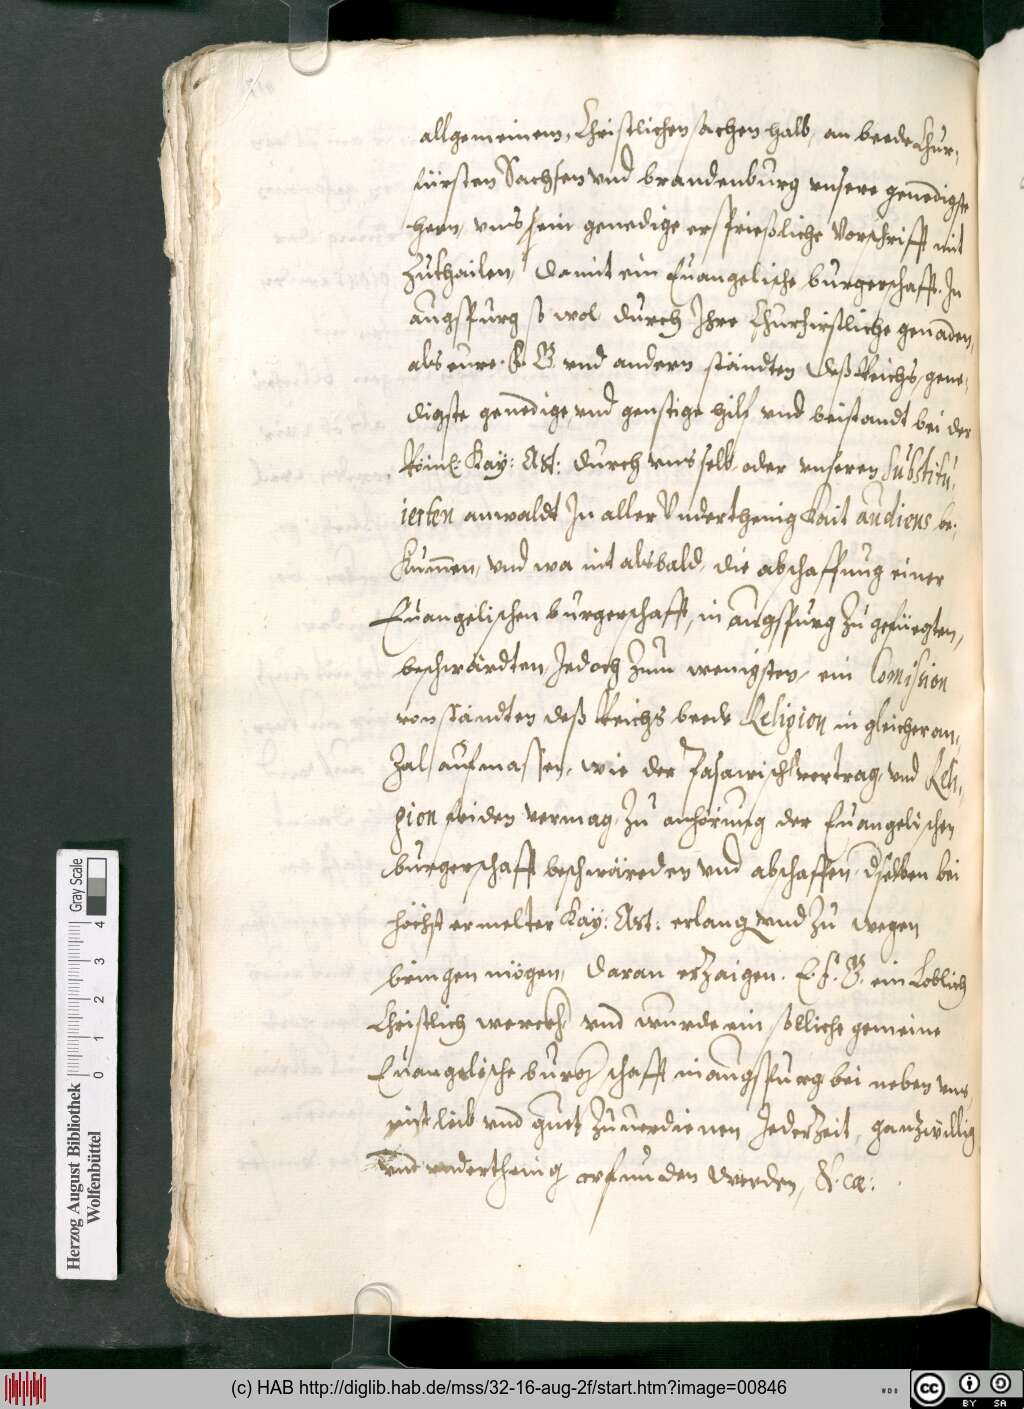 allgemeinem, Christlichen sachen halb, an beede Chur,
fürsten Sachsen vnd brandenburg vnsere genedigste
hern, vns sein genedige ersprießliche Vorschrifft mit
Zuthailen, damit ein Euangelische burgerschafft. In
augspurg so wol durch Ihre Churfirstliche genaden,
als eure. F. G. vnd andern ständten deß Reichs, gene,
digste genedige, vnd genstige hilf vnd beistandt bei der
Röm: Kay: Mt: durch vns selb oder vnseren Substitu,
ierten anwaldt In aller Vnderthenig Kait audiens be,
Kummen, vnd wa nit alsbald, die abschaffung einer
Euangelischen burgerschafft, in augspurg Zu gefüegten,
beschwärdten, Jedoch Zum wenigsten, ein Comision
von ständten deß Reichs beede Religion in gleicher an,
Zal auf massen, wie der Pasawisch vertrag, vnd Reli,
gion friden vermag, Zu anhörung der Euangelischen
burgerschafft beschwäreden vnd abschaffen, dselben bei
höchst ermelter Kay: Mt: erlang vnd Zu wegen
bringen mögen, daran erZaigen. E. F. G. ein Loblich
Christlich werckh, vnd wurde ein solliche gemeine
Euangelische burgerschafft in augspurg bei neben vns,
mit leib vnd guet Zuuerdienen Jeder Zeit, ganzwillig
vnd vnderthenig erfunden werden, &.cæ:
Herzog August Bibliothek
Wolfenbüttel
0 1 2 3 4
Gray Scale
(c) HAB http://diglib.hab.de/mss/32-16-aug-2f/start.htm?image=00846
WDB
cc
BY SA